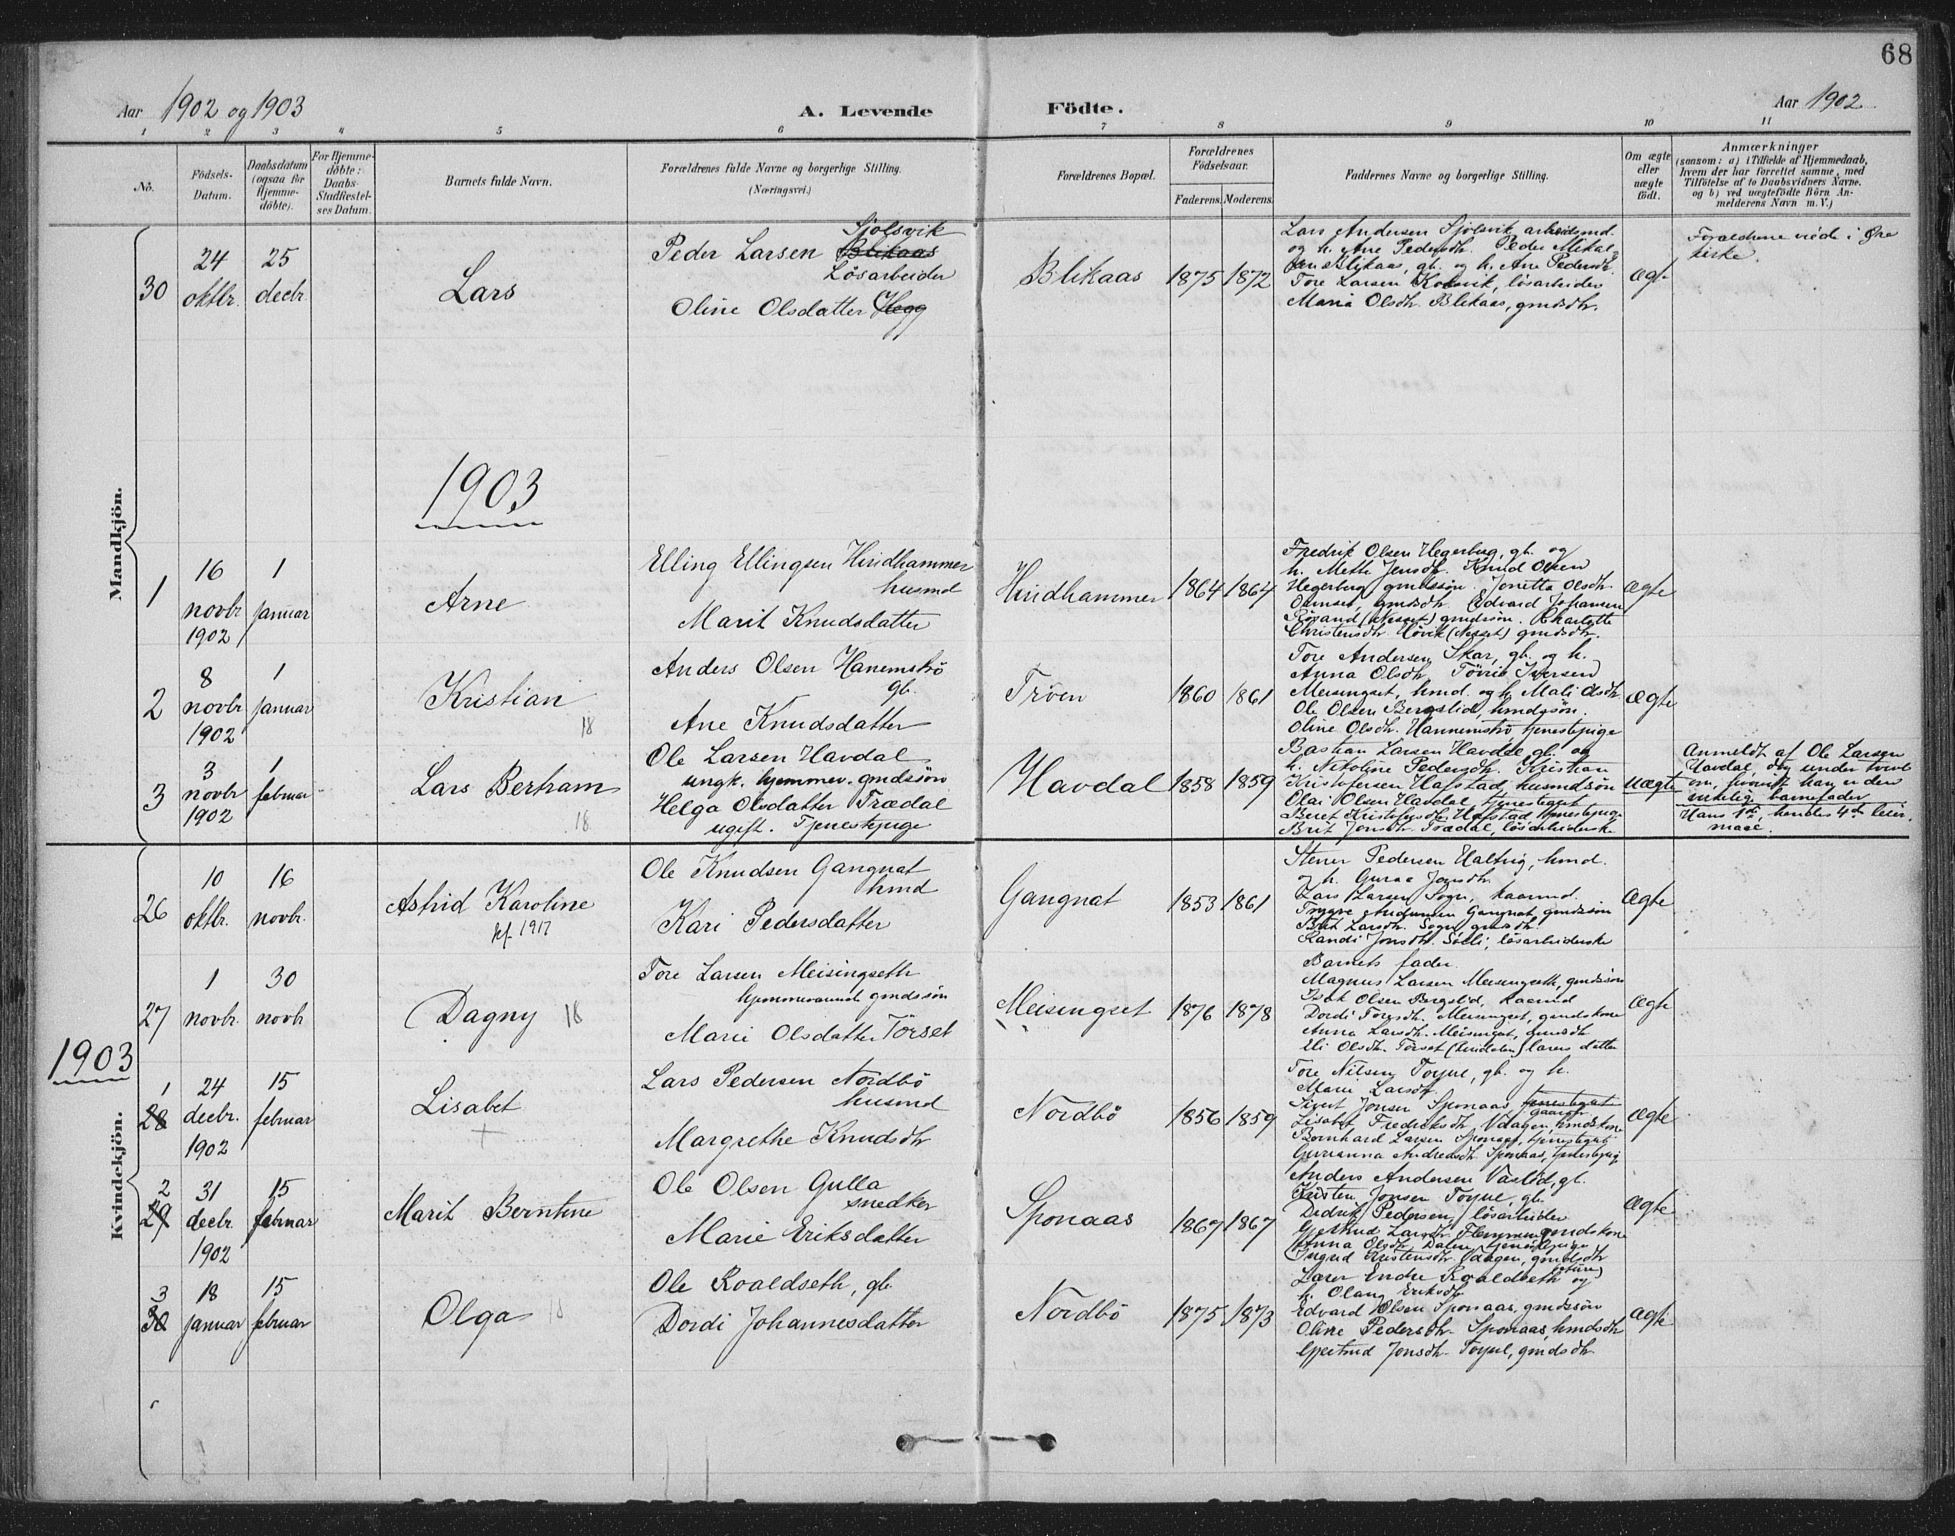 68
Aar 1902 og 1903
A. Levende Födte.
Aar 1902
1 2 3 4 5 6 7 8 9 10 11
No.
Födsels-Datum.
Daabsdatum (ogsaa for Hjemme-döbte).
For Hjemme-döbte: Daabs-Stadfæstel-ses Datum.
Barnets fulde Navn.
Forældrenes fulde Navne og borgerlige Stilling.
(Næringsvei.)
Forældrenes Bopæl.
Forældrenes Födselsaar.
Faderens. Moderens.
Faddernes Navne og borgerlige Stilling.
Om ægte eller uægte födt.
Anmærkninger
(saasom: a) i Tilfælde af Hjemmedaab, hvem der har forrettet samme, med Tilföielse af to Daabsvidners Navne. og b) ved uægtefödte Börn An-melderens Navn m. V.)
Mandkjön.
30
24 oktbr.
25 decbr.
Lars
Sjölsvik
Peder Larsen Blikaas
Lösarbeider
Oline Olsdatter Hegg
Blikaas
1875 1872
Lars Andersen Sjölsvik arbeidsmd.
og h. Ane Pedersdh. Peder Mikal
Blikaas, gb. og h. Ane Pedersdr.
Tore Larsen, lösarbeider
Maria Olsdtr. Blikaas, gmdsdtr.
ægte
Forældrene viet i Öre kirke.
1903
1
16 novbr 1902
1 januar
Arne
Elling Ellingsen Hindhammer
husmd
Marit Knudsdatter
Hindhammer
1864 1864
Fredrik Olsen Hegerberg, gb. og
h. Mette Jensdtr. Knud Olsen
Hegerberg gmdssön. Jonetta Olsdtr.
gmdsdtr. Edvard Johansen
Rösand (Nesset) gmdssön. Charlotte
Christensdtr. Hövik (Nesset) gmdsdtr.
ægte
2
8 novbr 1902
1 januar
Kristian
18
Anders Olsen Hanemströ
gb.
Ane Knudsdatter
Tröen
1860 1861
Tore Andersen Skar, gb. og h.
Anna Olsdtr. Iversen
Meisingset, hmd. og h. Mali Olsdtr.
Ole Olsen Bergslid, hmdssön.
Oline Olsdtr. Hannemströ, tjenestepige
ægte
3
3 novbr 1902
1 februar
Lars Berham
18
Ole Larsen Havdal
ungk. hjemmev. gmdssön
Helga Olsdatter Trædal
ugift. Tjenestepige
Havdal
1858 1859
Bastian Larsen Havdal gb. og
h. Nikoline Pedersdtr. Kristian
Kristofersen Hafstad, husmdssön
Olai Olsen Havdal tjenestegut
Beret Kristofersdtr. Hafstad tjenestepige
Brit Jonsdtr. Trædal, lösarbeiderske
uægte
Anmeldt af Ole Larsen
Havdal, dog under tvivl
om, hvorvidt han er den
virkelige barnefader.
Hans 1ste, hendes 4de leier-
maal.
Kvindekjön.
26
10 oktbr.
16 novbr.
Astrid Karoline
kf. 1917
Ole Knudsen Gangnat
hmd
Kari Pedersdatter
Gangnat
1853 1861
Stener Pedersen Haltvig, hmd.
og h. Guraa Jonsdtr.
Lars Larsen Sogn, kaarmd.
Trygve Gangnat, gmdssön
Brit Larsdtr. Sogn, gmdsdtr.
Randi Jonsdtr. lösarbeiderske
ægte
27
1 novbr.
30 novbr
Dagny 18
Tore Larsen Meisingseth
hjemmeværende gmdssön
Marie Olsdatter Törset
Meisingset
1876 1878
Barnets fader
Magnus Larsen Meisingseth, gmdssön
Olsen Bergslid, kaarmd
Dordi Toresdtr. Meisingset, gmdskone
Anna Larsdtr. Meisingset, gmdsdtr
Eli Olsdtr. Törset lærers datter
ægte
1903
1
28
24 decbr. 1902
15 februar
Lisabet
Lars Pedersen Nordbö
husmd
Margrethe Knudsdtr
Nordbö
1856 1859
Tore Nilsen Torjul, gb. og h.
Marie Larsdtr
Sivert Jonsen Sponaas tjenestegut
gaardbr
Lisabet Fredriksdtr, Vdagen, hmdskone
Bernhard Larsen Sponaas, tjenestegut
Gurianna Andreasdtr. Sponaas, tjenestepig
ægte
2
29
31 decbr. 1902
15 februar
Marit Berntine
Ole Olsen Gulla
snedker
Marie Eriksdatter
Sponaas
1867 1867
Anders Andersen Vaslid, gb.
Kristen Jonsen Torjul, gb.
Didrik Pedersen, lösarbeider
Gjertrud Larsdtr. gmdskone
Anna Olsdtr. Dalen, tjenestepige
Ingrid Kristensdtr. Vdagen, gmdsdtr
ægte
3
30
18 januar
15 februar
Olga 18
Ole Roaldseth, gb.
Dordi Johannesdatter
Nordbö
1875 1873
Lærer Endre Roaldseth og
h. Olang Eriksdtr
Edvard Olsen Sponaas, gmdssön
Oline Pedersdtr. Sponaas, hmdsdtr
Gjertrud Jonsdtr. Torjul, gmdsdtr
ægte